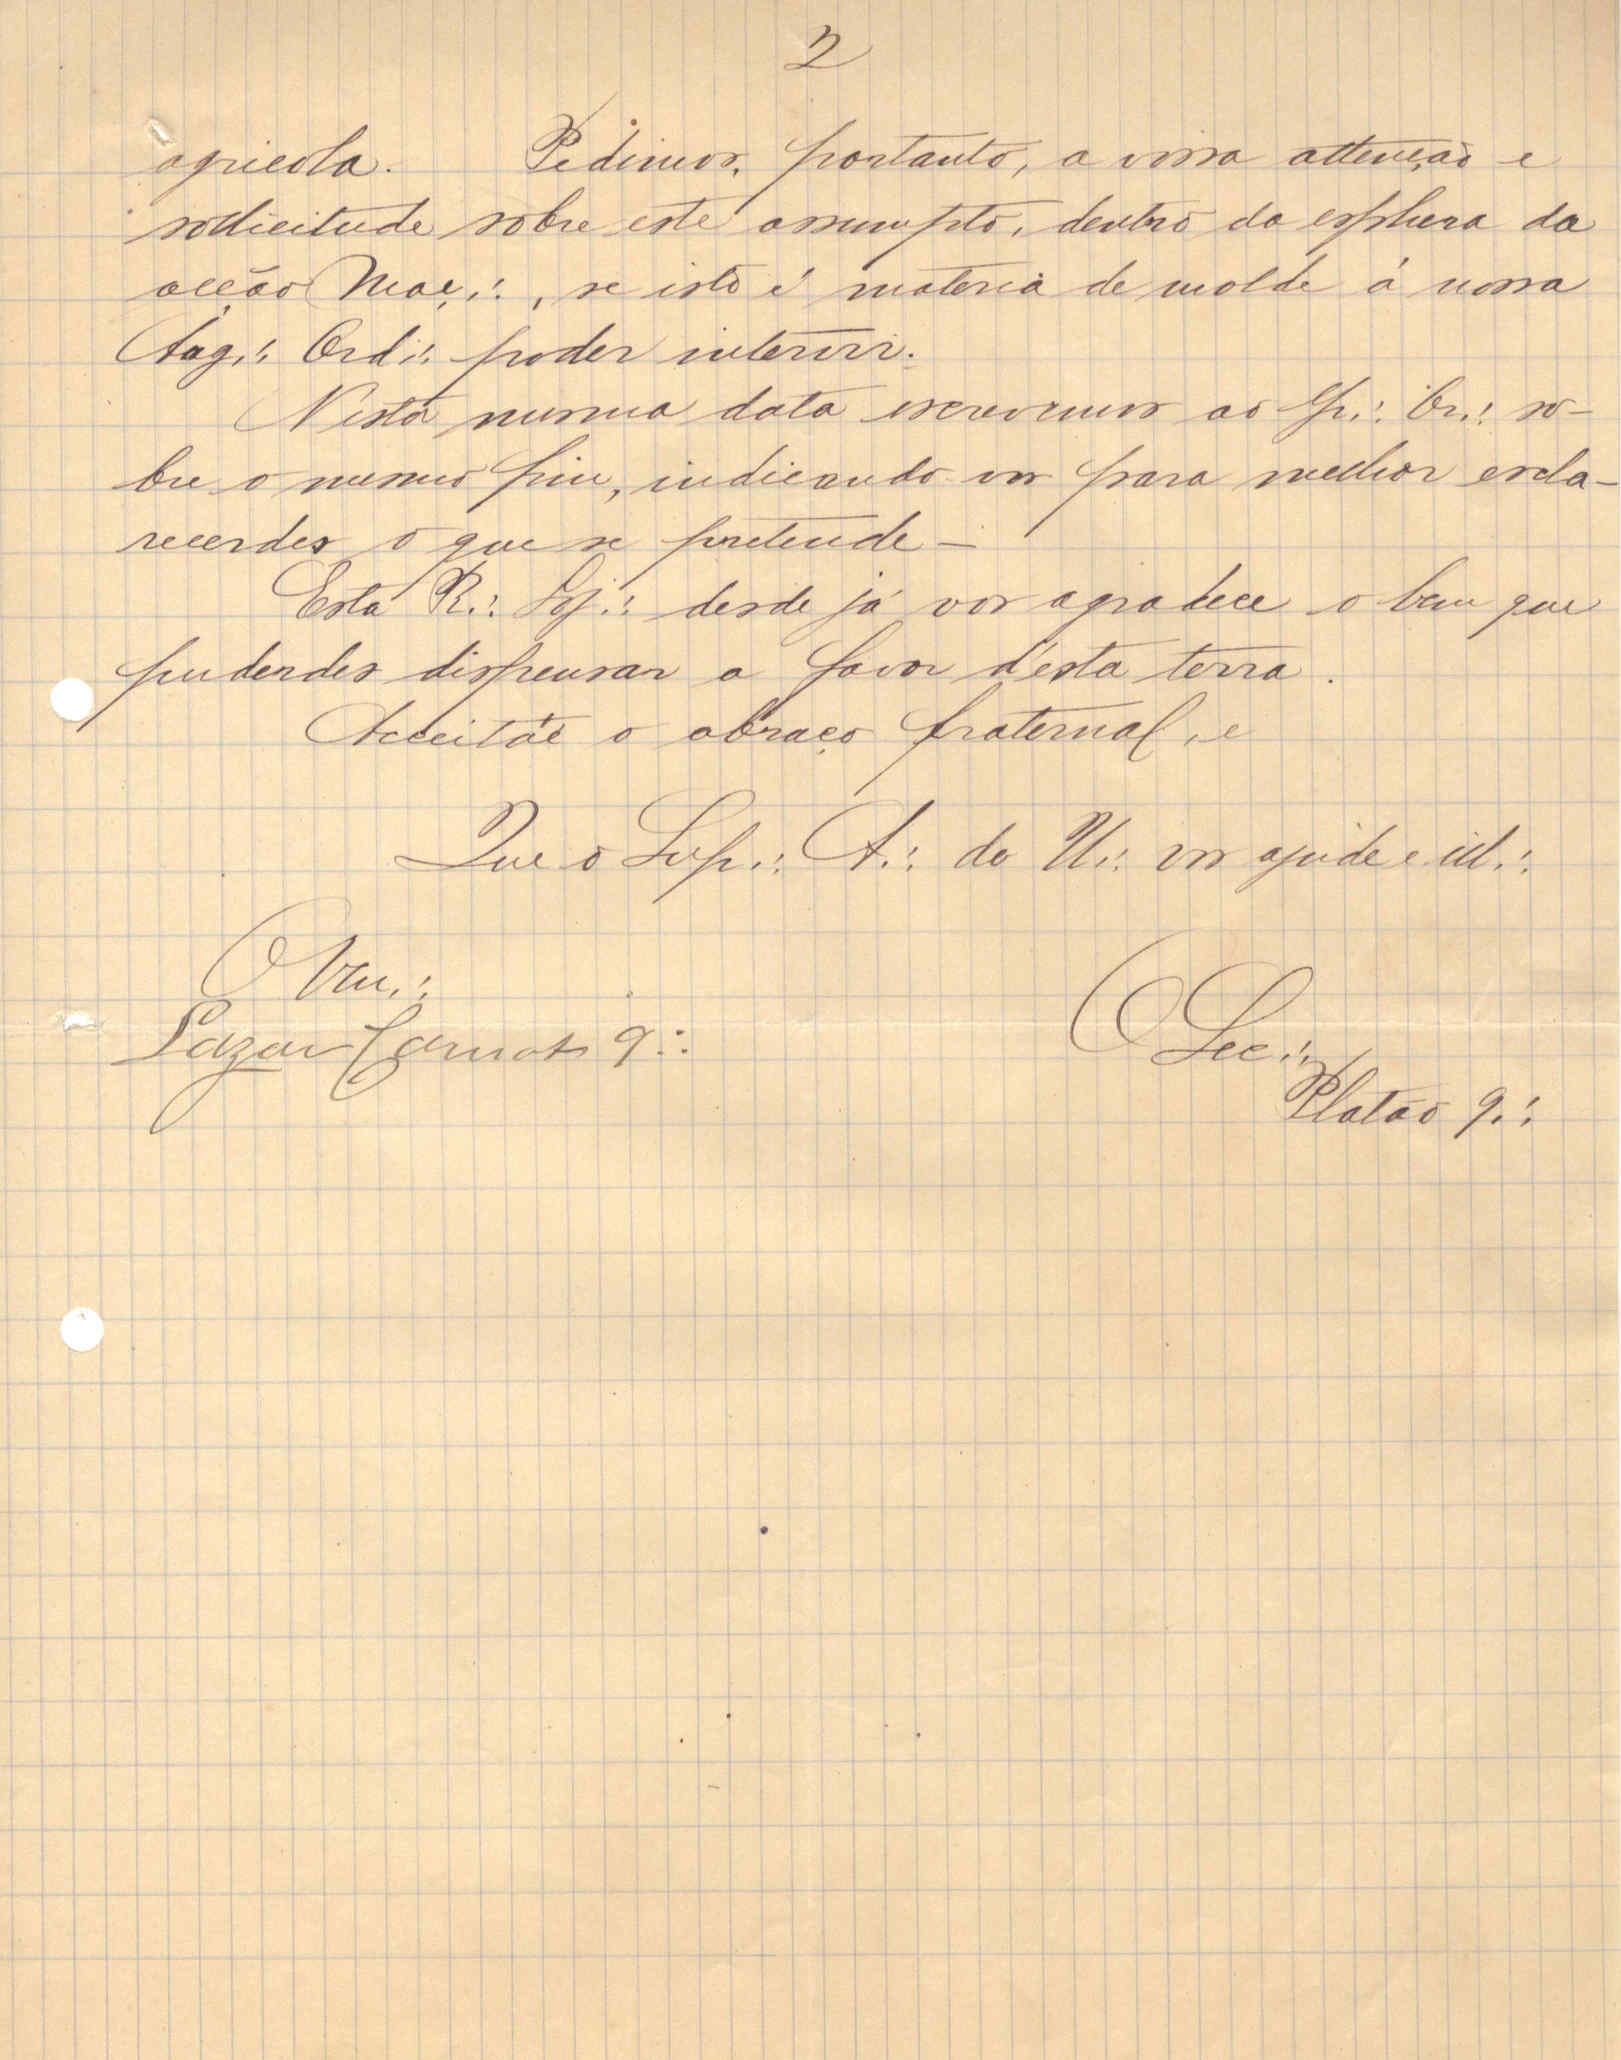 2
agricola. Pedimos, portanto, a vossa attenção e
sollicitude sobre este assumpto, dentro da esphera da
acção Maç∴, se isto é materia de molde á nossa
Aug∴ Ord∴ poder intervir.
N'esta mesma data escrevemos ao Gr∴ Or∴ so-
bre o mesmo fim, indicando-vos para melhor escla-
recerdes o que se pretende –
Esta R∴ Loj∴ desde já vos agradece o bem que
puderdes dispensar a favor d'esta terra.
Acceitáe o abraço fraternal, e
Que o Sup∴ A∴ do U∴ vos ajude e ill∴
O Ven∴
O Sec∴
Lazar Carnot 9∴
Platão 9∴